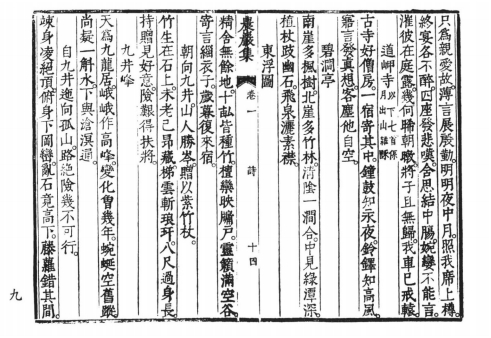 只爲親愛故薄言展殷勤明明夜中月照我席上樽
終宴各不醉四座發悲嘆含思結中腸婉孌不能言
濯彼在庭露幾何晞朝暾將子且無歸我車已戒轅
道岬寺月出山下七百餘
古寺好僧房一宿寄其中鐘鼓知永夜鈴鐸知高風
寤言發真想客塵他自空
碧澗亭
南崖多楓樹北崖多竹林清陰一澗合中見綠潭深
植杖歧幽石飛泉灑素襟
東浮圖
農巖集 卷一 詩 十四
精舍無餘地十畝皆種竹檀欒映牖戶靈籟滿空谷
寄言緇衣子歲暮復來宿
朝向九井山人勝岑贈以紫竹杖
竹生在石上木老已昂藏梯雲斬琅玕八尺過身長
持贈見好意險艱得扶將
九井峰
天爲九龍居峨峨作高峰變化曾幾年蜿蜒空舊蹤
尚疑一斛水下與滄溟通
自九井迤向孤山路絶險幾不可行
竦身凌絶頂俯身下岡巒亂石竟高下藤蘿錯其間
九